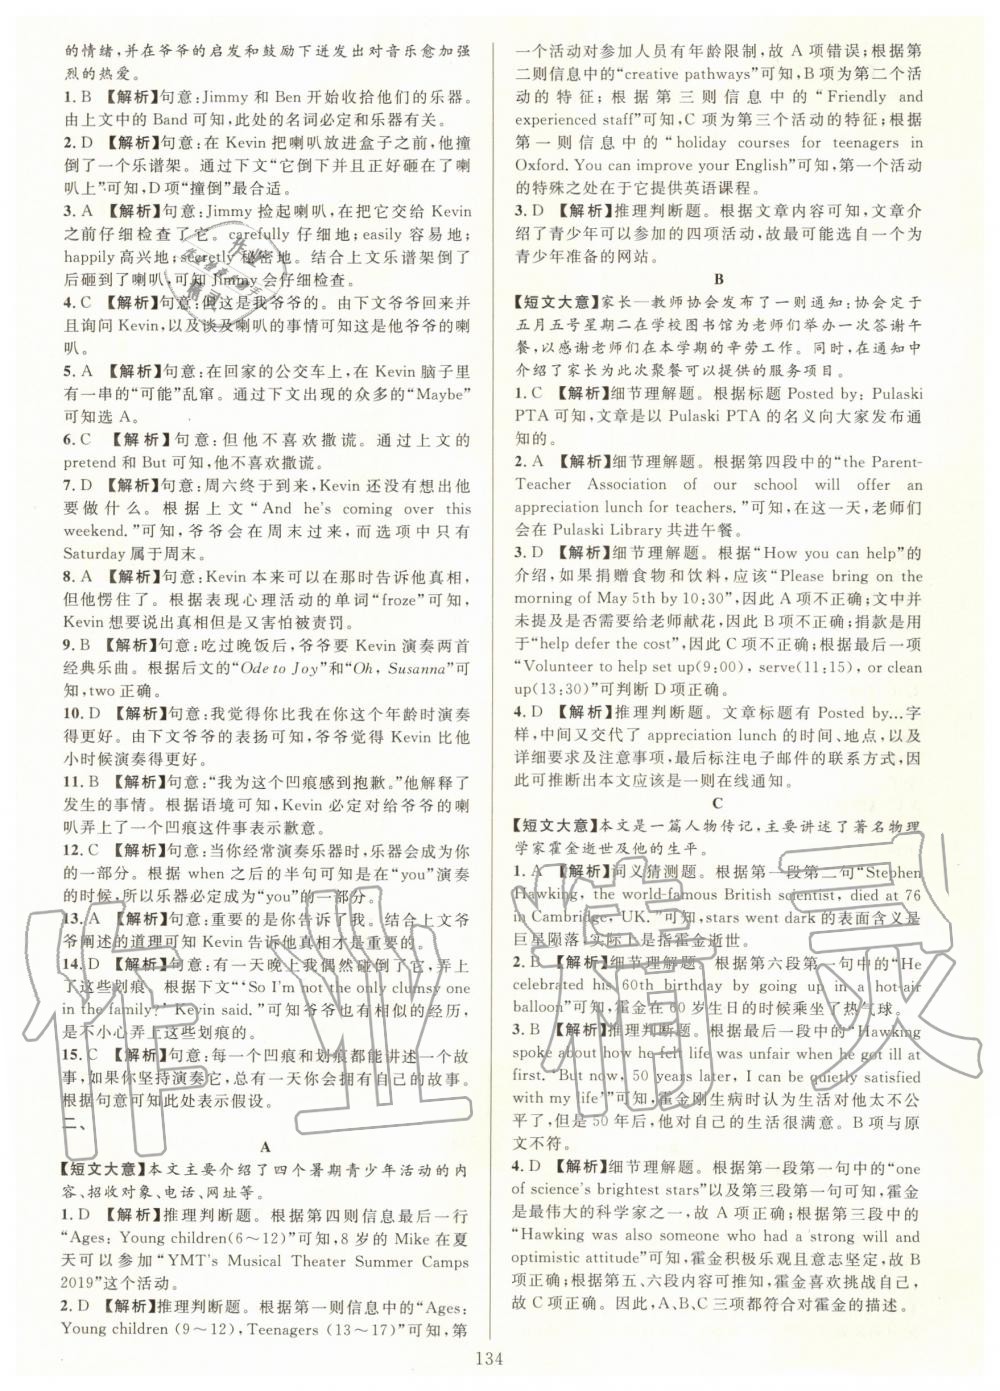 的情绪,并在爷爷的启发和鼓励下迸发出对音乐愈加强
烈的热爱。
1. B 【解析】句意:Jimmy 和 Ben 开始收拾他们的乐器。
由上文中的 Band 可知,此处的名词必定和乐器有关。
2. D 【解析】句意:在 Kevin 把喇叭放进盒子之前,他撞
倒了一个乐谱架。通过下文“它倒下并且正好砸在了喇
叭上”可知,D 项“撞倒”最合适。
3. A 【解析】句意:Jimmy 捡起喇叭,在把它交给 Kevin
之前仔细检查了它。carefully 仔细地;easily 容易地;
happily 高兴地;secretly 秘密地。结合上文乐谱架倒了
后砸到了喇叭,可知 Jimmy 会仔细检查
4. C 【解析】句意:但这是我爷爷的。由下文爷爷回来并
且询问 Kevin,以及谈及喇叭的事情可知这是他爷爷的喇
叭。
5. A 【解析】句意:在回家的公交车上,在 Kevin 脑子里
有一串的“可能”乱窜。通过下文出现的众多的“Maybe”
可知选 A。
6. C 【解析】句意:但他不喜欢撒谎。通过上文的
pretend 和 But 可知,他不喜欢撒谎。
7. D 【解析】句意:周六终于到来,Kevin 还没有想出他
要做什么。根据上文“And he's coming over this
weekend.”可知,爷爷会在周末过来,而选项中只有
Saturday 属于周末。
8. A 【解析】句意:Kevin 本来可以在那时告诉他真相,
但他愣住了。根据表现心理活动的单词“froze”可知,
Kevin 想要说出真相但是又害怕被责罚。
9. B 【解析】句意:吃过晚饭后,爷爷要 Kevin 演奏两首
经典乐曲。根据后文的“Ode to Joy”和“Oh, Susanna”可
知,two 正确。
10. D 【解析】句意:我觉得你比我在你这个年龄时演奏
得更好。由下文爷爷的表扬可知,爷爷觉得 Kevin 比他
小时候演奏得更好。
11. B 【解析】句意:“我为这个凹痕感到抱歉。”他解释了
发生的事情。根据语境可知,Kevin 必定对给爷爷的喇
叭弄上了一个凹痕这件事表示歉意。
12. C 【解析】句意:当你经常演奏乐器时,乐器会成为你
的一部分。根据 when 之后的半句可知是在“you”演奏
的时候,所以乐器必定成为“you”的一部分。
13. A 【解析】句意:重要的是你告诉了我。结合上文爷
爷阐述的道理可知 Kevin 告诉他真相才是重要的。
14. D 【解析】句意:有一天晚上我偶然碰到了它,弄上
了这些划痕。根据下文“‘So I'm not the only clumsy one
in the family?’ Kevin said.”可知爷爷也有相似的经历,
是不小心弄上这些划痕的。
15. C 【解析】句意:每一个凹痕和划痕都能讲述一个故
事,如果你坚持演奏它,总有一天你会拥有自己的故事。
根据句意可知此处表示假设。
二、
A
【短文大意】本文主要介绍了四个暑期青少年活动的内
容、招收对象、电话、网址等。
1. D 【解析】推理判断题。根据第四则信息最后一行
“Ages: Young children(6～12)”可知,8 岁的 Mike 在夏
天可以参加“YMT's Musical Theater Summer Camps
2019”这个活动。
2. D 【解析】推理判断题。根据第一则信息中的“Ages:
Young children (9～12),Teenagers (13～17)”可知,第
一个活动对参加人员有年龄限制,故 A 项错误;根据第
二则信息中的“creative pathways”可知,B 项为第二个活
动的特征;根据第三则信息中的“Friendly and
experienced staff”可知,C 项为第三个活动的特征;根据
第一则信息中的“holiday courses for teenagers in
Oxford. You can improve your English”可知,第一个活动
的特殊之处在于它提供英语课程。
3. D 【解析】推理判断题。根据文章内容可知,文章介
绍了青少年可以参加的四项活动,故最可能选自一个为
青少年准备的网站。
B
【短文大意】家长—教师协会发布了一则通知:协会定于
五月五号星期二在学校图书馆为老师们举办一次答谢午
餐,以感谢老师们在本学期的辛劳工作。同时,在通知中
介绍了家长为此次聚餐可以提供的服务项目。
1. C 【解析】细节理解题。根据标题 Posted by: Pulaski
PTA 可知,文章是以 Pulaski PTA 的名义向大家发布通
知的。
2. A 【解析】细节理解题。根据第四段中的“the Parent-
Teacher Association of our school will offer an
appreciation lunch for teachers.”可知,在这一天,老师们
会在 Pulaski Library 共进午餐。
3. D 【解析】细节理解题。根据“How you can help”的
介绍,如果捐赠食物和饮料,应该“Please bring on the
morning of May 5th by 10:30”,因此 A 项不正确;文中并
未提及是否需要给老师献花,因此 B 项不正确;捐款是用
于“help defer the cost”,因此 C 项不正确;根据最后一项
“Volunteer to help set up(9:00), serve(11:15), or clean
up(13:30)”可判断 D 项正确。
4. D 【解析】推理判断题。文章标题有 Posted by...字
样,中间又交代了 appreciation lunch 的时间、地点,以及
详细要求及注意事项,最后标注电子邮件的联系方式,因
此可推断出本文应该是一则在线通知。
C
【短文大意】本文是一篇人物传记,主要讲述了著名物理
学家霍金逝世及他的生平。
1. A 【解析】词义猜测题。根据第一段第二句“Stephen
Hawking, the world-famous British scientist, died at 76
in Cambridge, UK.”可知,stars went dark 的表面含义是
巨星陨落,实际上是指霍金逝世。
2. B 【解析】细节理解题。根据第六段第一句中的“He
celebrated his 60th birthday by going up in a hot-air
balloon”可知,霍金在 60 岁生日的时候乘坐了热气球。
3. B 【解析】推理判断题。根据最后一段中的“Hawking
spoke about how he felt life was unfair when he got ill at
first. ‘But now, 50 years later, I can be quietly satisfied
with my life’”可知,霍金刚生病时认为生活对他太不公
平了,但是 50 年后,他对自己的生活很满意。B 项与原
文不符。
4. D 【解析】细节理解题。根据第一段第一句中的“one
of science's brightest stars”以及第三段第一句可知,霍金
是最伟大的科学家之一,故 A 项正确;根据第三段中的
“Hawking was also someone who had a strong will and
optimistic attitude”可知,霍金积极乐观且意志坚定,故 B
项正确;根据第五、六段内容可推知,霍金喜欢挑战自己,
故 C 项正确。因此,A、B、C 三项都符合对霍金的描述。
134
作业精灵